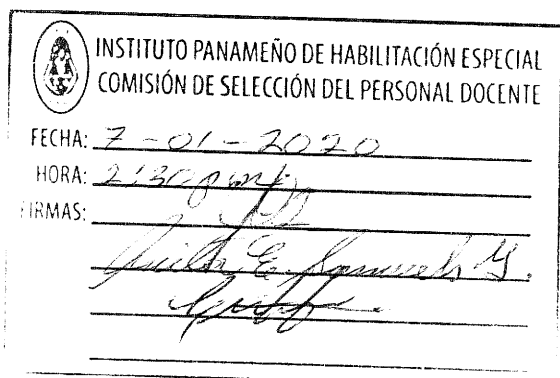 INSTITUTO PANAMEÑO DE HABILITACIÓN ESPECIAL
COMISIÓN DE SELECCIÓN DEL PERSONAL DOCENTE
FECHA: 7-01-2020
HORA: 2:30 pm
FIRMAS:
E. Samuels G.